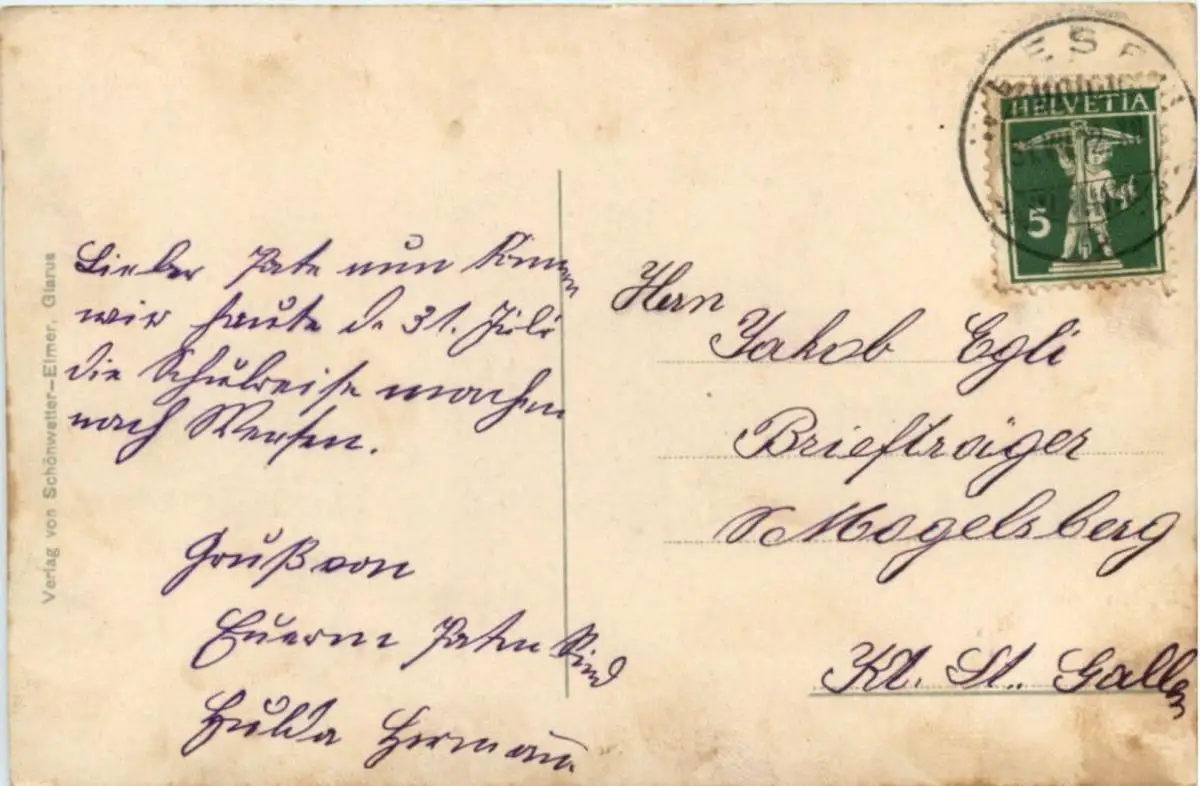 HELVETIA
5
Lieber Pate nun können
wir heute d. 31. Juli
die Schulreise machen
nach Weesen.
Gruß von
Euerm Paten Kind
Hulda Herman
Hern
Jakob Egli
Briefträger
Mogelsberg
Kt. St. Gallen
Verlag von Schönwetter-Elmer, Glarus